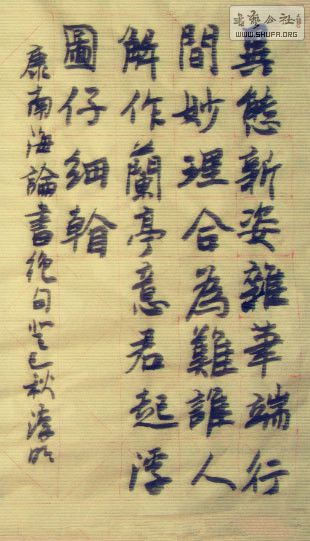 書藝公社
WWW.SHUFA.ORG
異態新姿雜筆端行
間妙理合為難誰人
解作蘭亭意君起浮
圖仔細看
康南海論書絕句癸巳秋